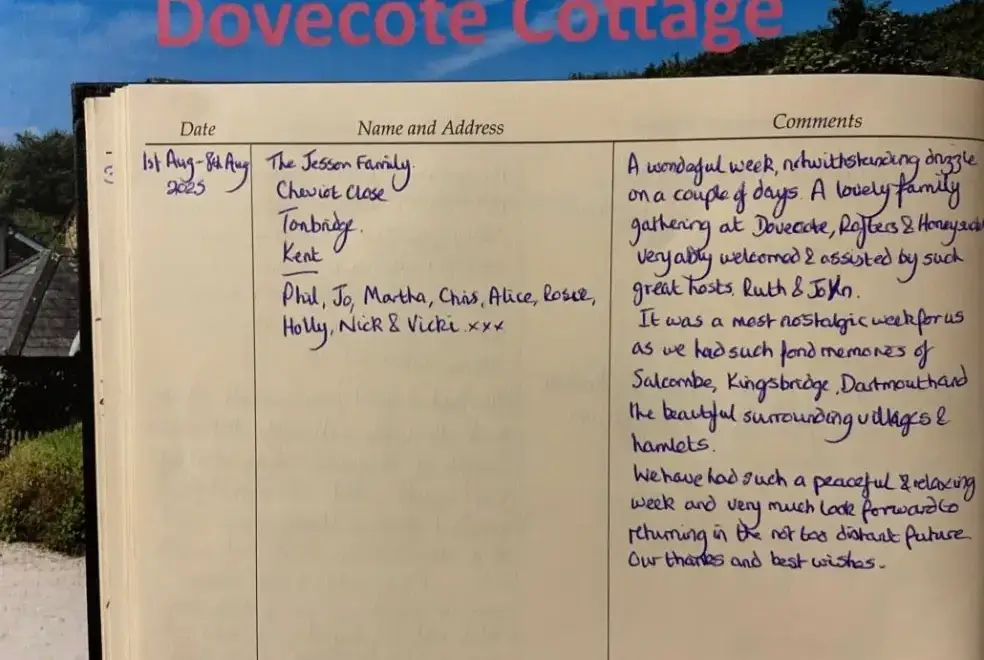 Dovecote Cottage
Date
Name and Address
Comments
1st Aug - 8th Aug
2025
The Jesson Family.
Cheviot Close
Tonbridge.
Kent
Phil, Jo, Martha, Chris, Alice, Rosie,
Holly, Nick & Vicki. xxx
A wonderful week, notwithstanding drizzle
on a couple of days. A lovely family
gathering at Dovecote, Rafters & Honeysuckl
very ably welcomed & assisted by such
great hosts. Ruth & John.
It was a most nostalgic week for us
as we had such fond memories of
Salcombe, Kingsbridge, Dartmouth and
the beautiful surrounding villages &
hamlets.
We have had such a peaceful & relaxing
week and very much look forward to
returning in the not too distant future
Our thanks and best wishes.